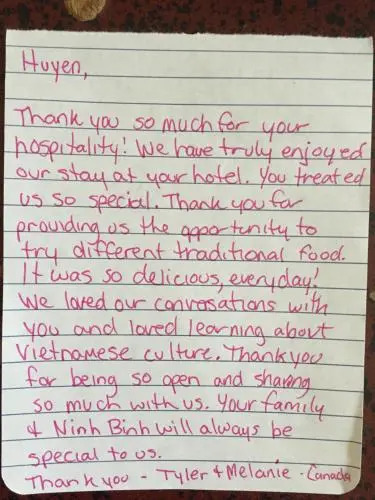 Huyen,
Thank you so much for your
hospitality! We have truly enjoyed
our stay at your hotel. You treated
us so special. Thank you for
providing us the opportunity to
try different traditional food.
It was so delicious, everyday!
We loved our convosations with
you and loved learning about
Vietnamese culture. Thank you
for being so open and sharing
so much with us. Your family
& Ninh Binh will always be
special to us.
Thank you - Tyler & Melanie - Canada